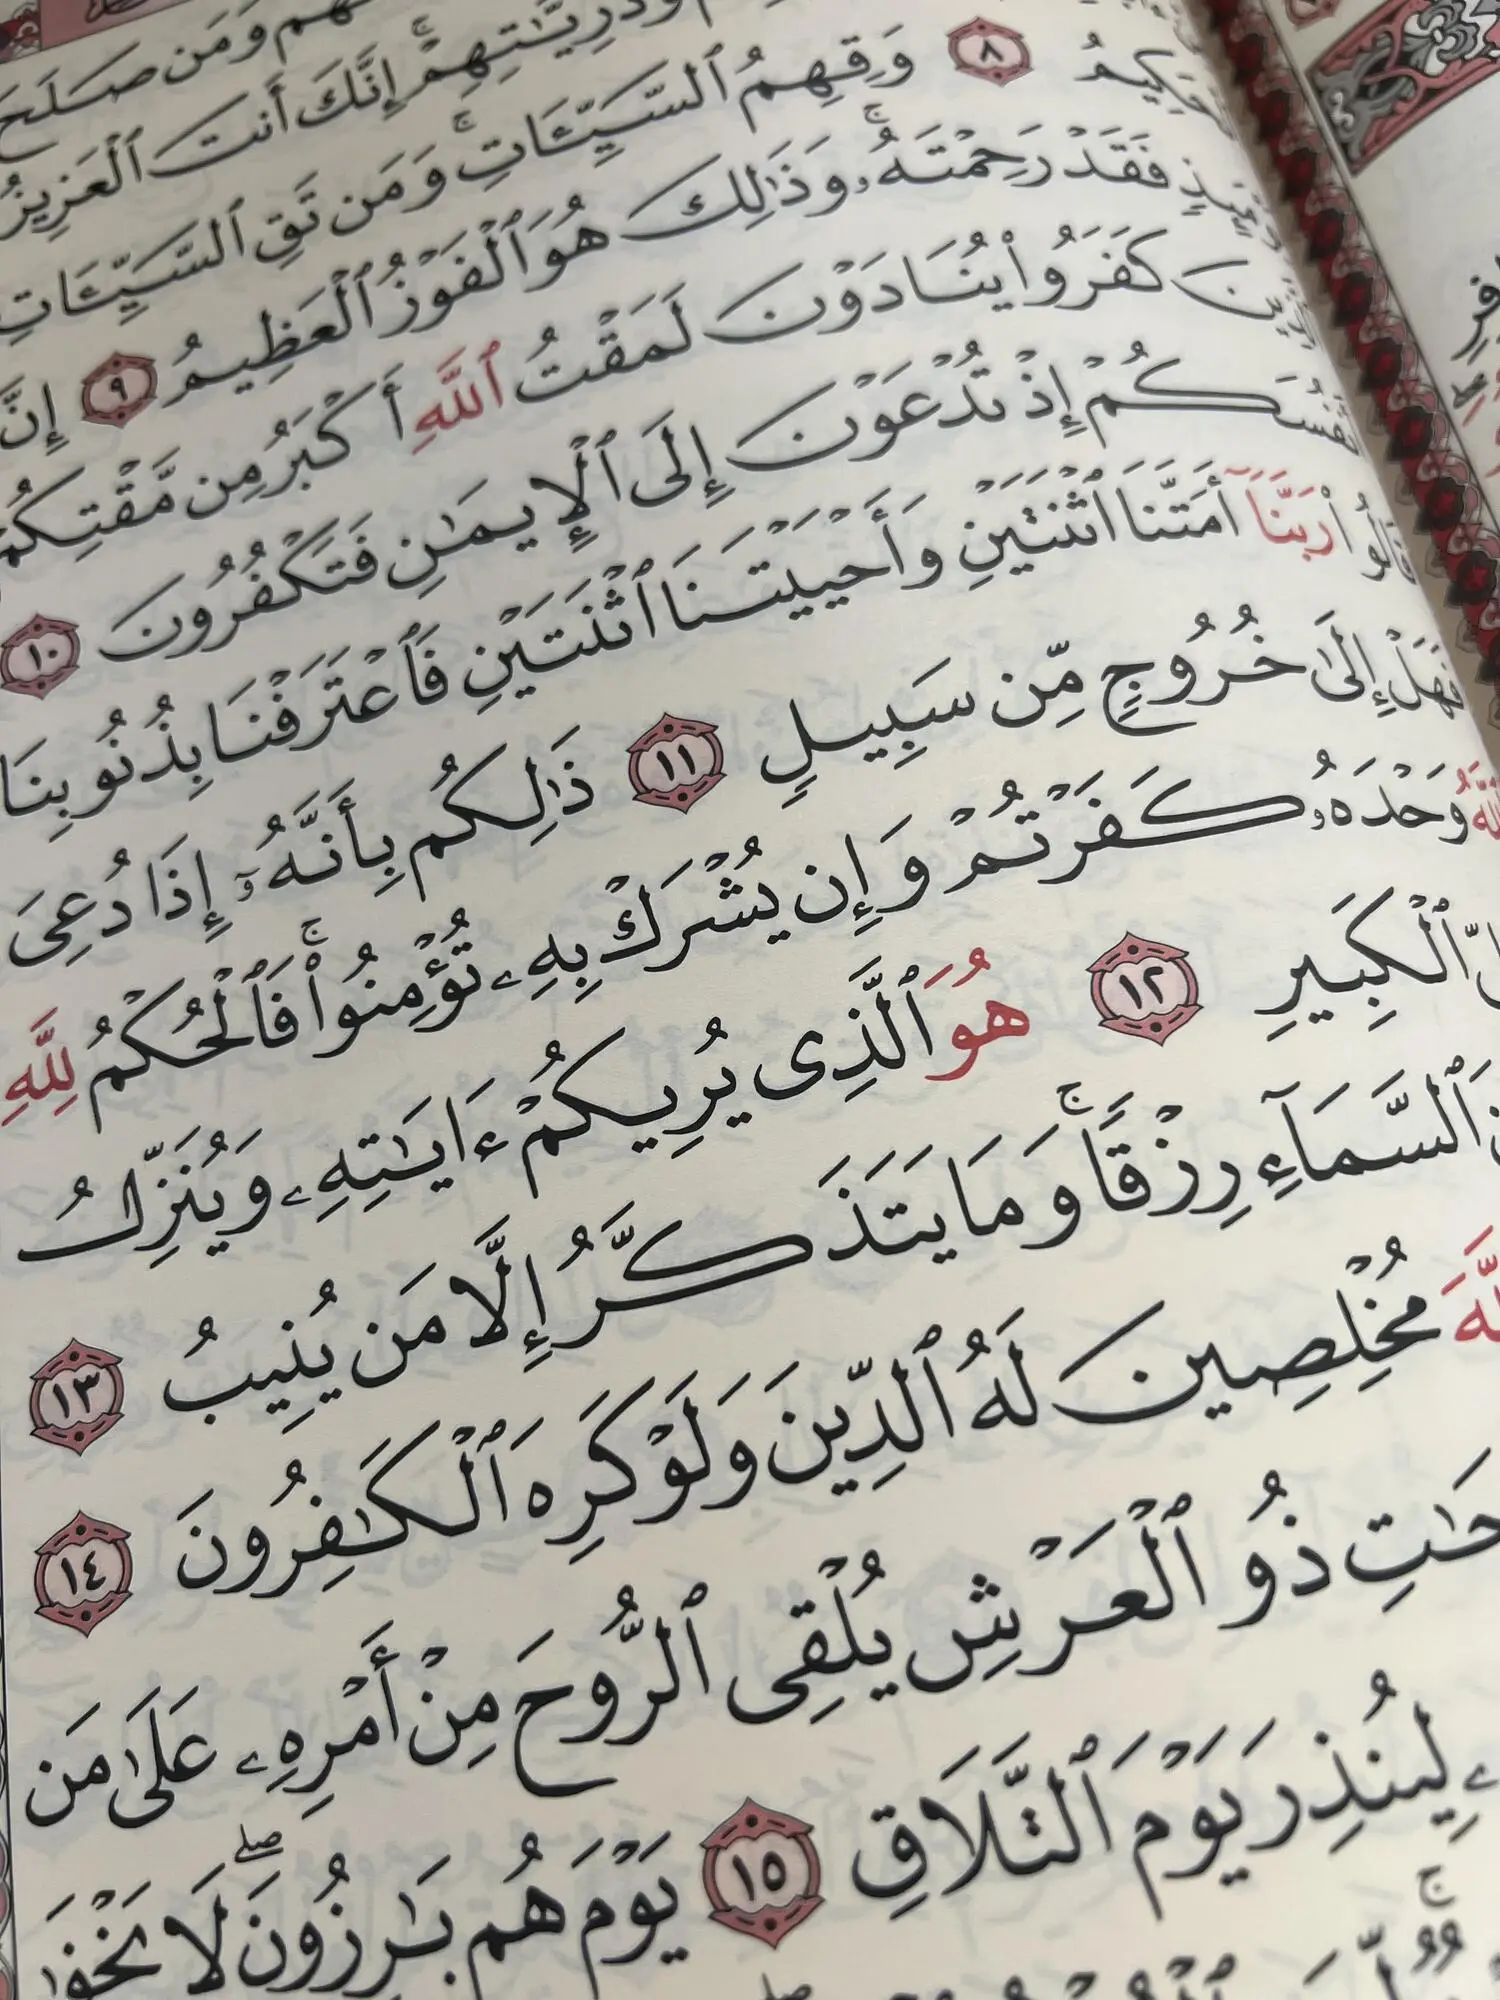 وَمَن صَلَحَ
وَذُرِّيَّٰتِهِمْ ۚ إِنَّكَ أَنتَ ٱلْعَزِيزُ
ٱلْحَكِيمُ ٨ وَقِهِمُ ٱلسَّيِّـَٔاتِ ۚ وَمَن تَقِ ٱلسَّيِّـَٔاتِ
يَوْمَئِذٍ فَقَدْ رَحِمْتَهُۥ ۚ وَذَٰلِكَ هُوَ ٱلْفَوْزُ ٱلْعَظِيمُ ٩ إِنَّ
ٱلَّذِينَ كَفَرُوا۟ يُنَادَوْنَ لَمَقْتُ ٱللَّهِ أَكْبَرُ مِن مَّقْتِكُمْ
أَنفُسَكُمْ إِذْ تُدْعَوْنَ إِلَى ٱلْإِيمَٰنِ فَتَكْفُرُونَ ١٠
قَالُوا۟ رَبَّنَآ أَمَتَّنَا ٱثْنَتَيْنِ وَأَحْيَيْتَنَا ٱثْنَتَيْنِ فَٱعْتَرَفْنَا بِذُنُوبِنَا
فَهَلْ إِلَىٰ خُرُوجٍ مِّن سَبِيلٍ ١١ ذَٰلِكُم بِأَنَّهُۥٓ إِذَا دُعِىَ
ٱللَّهُ وَحْدَهُۥ كَفَرْتُمْ وَإِن يُشْرَكْ بِهِۦ تُؤْمِنُوا۟ ۚ فَٱلْحُكْمُ لِلَّهِ
ٱلْكَبِيرِ ١٢ هُوَ ٱلَّذِى يُرِيكُمْ ءَايَٰتِهِۦ وَيُنَزِّلُ
ٱلسَّمَآءِ رِزْقًا ۚ وَمَا يَتَذَكَّرُ إِلَّا مَن يُنِيبُ ١٣
مُخْلِصِينَ لَهُ ٱلدِّينَ وَلَوْ كَرِهَ ٱلْكَٰفِرُونَ ١٤
ذُو ٱلْعَرْشِ يُلْقِى ٱلرُّوحَ مِنْ أَمْرِهِۦ عَلَىٰ مَن
لِيُنذِرَ يَوْمَ ٱلتَّلَاقِ ١٥ يَوْمَ هُم بَٰرِزُونَ ۖ لَا يَخْفَىٰ